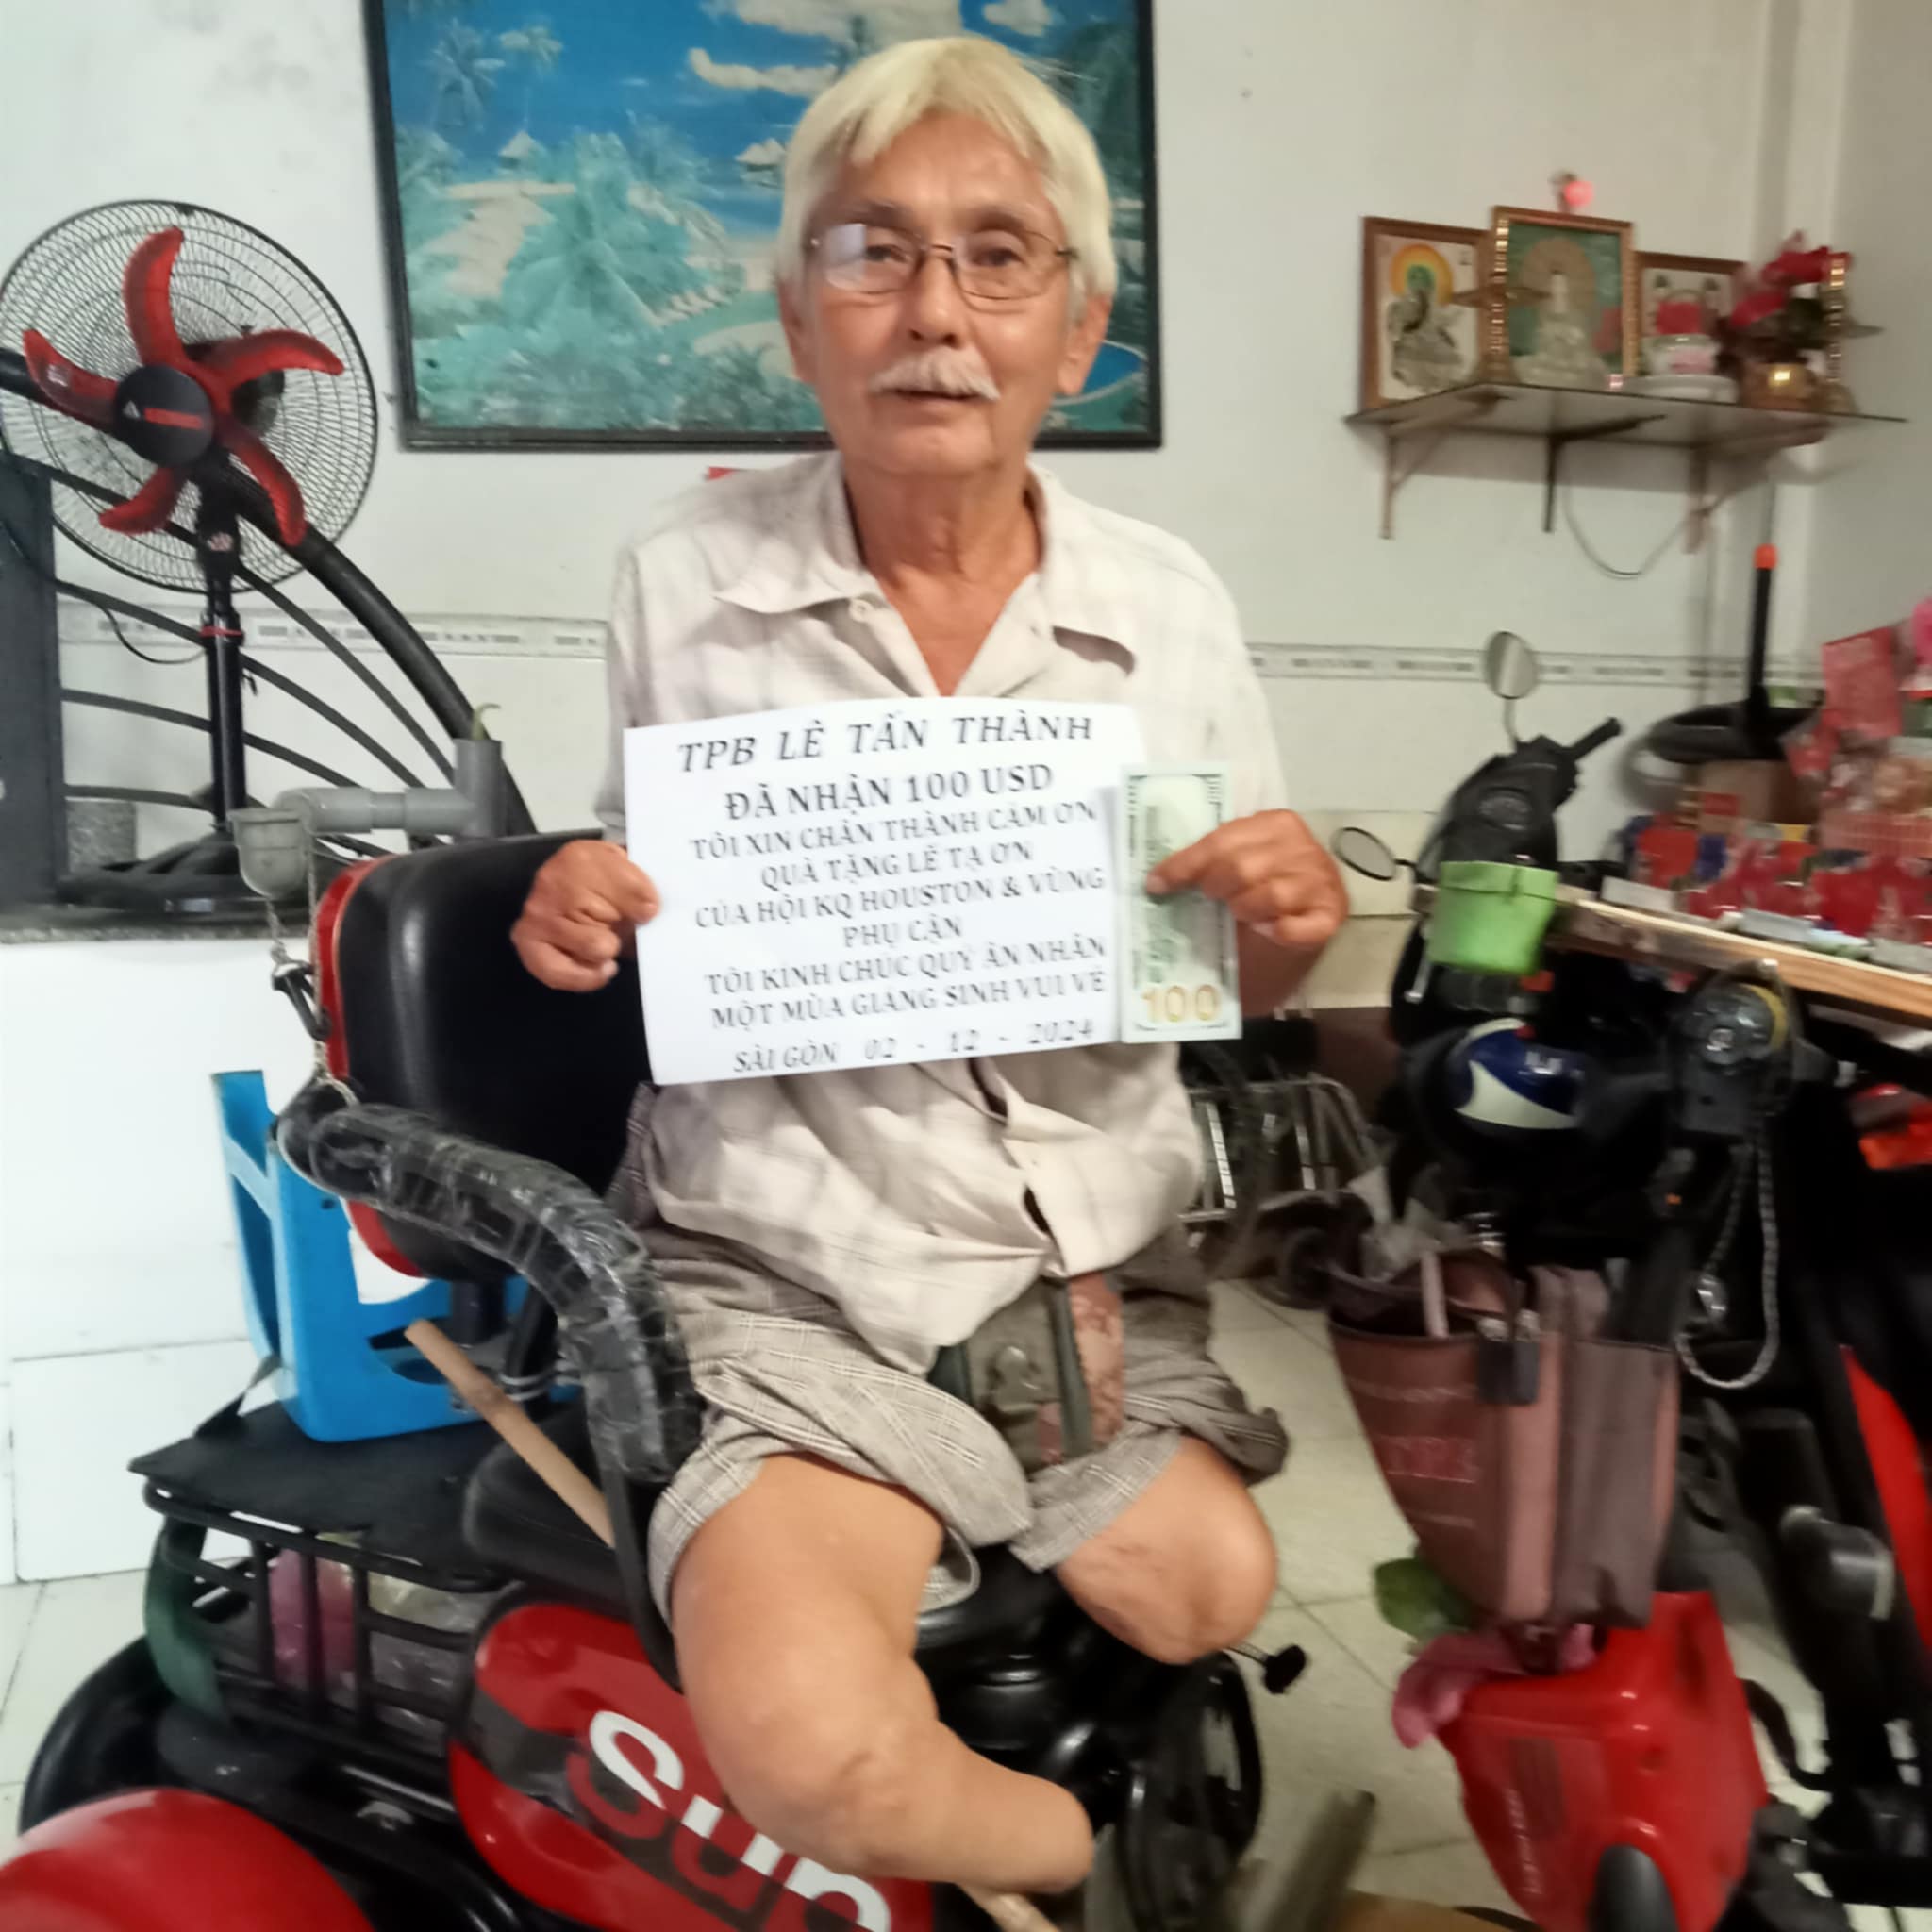 TPB LÊ TẤN THÀNH
ĐÃ NHẬN 100 USD
TÔI XIN CHÂN THÀNH CẢM ƠN
QUÀ TẶNG LỄ TẠ ƠN
CỦA HỘI KQ HOUSTON & VÙNG
PHỤ CẬN
TÔI KÍNH CHÚC QUÝ ÂN NHÂN
MỘT MÙA GIÁNG SINH VUI VẺ
SÀI GÒN 02 - 12 - 2024
100
Sup